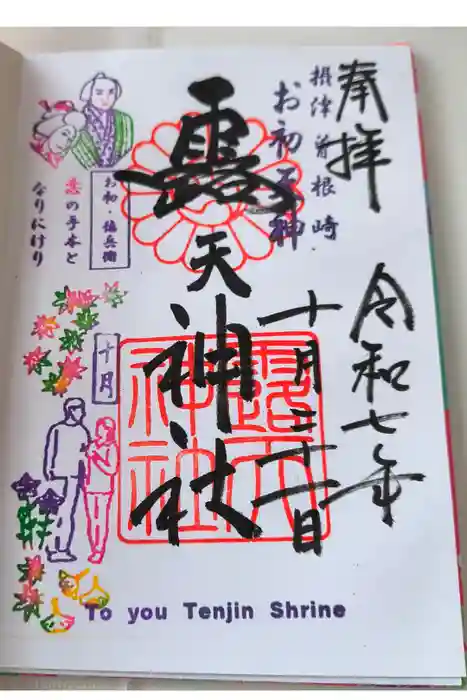 奉拝
令和七年
十月三十一日
摂津曽根崎
お初天神
露天神社
露天神社
お初・徳兵衛
恋の手本と
なりにけり
十月
To you Tenjin Shrine